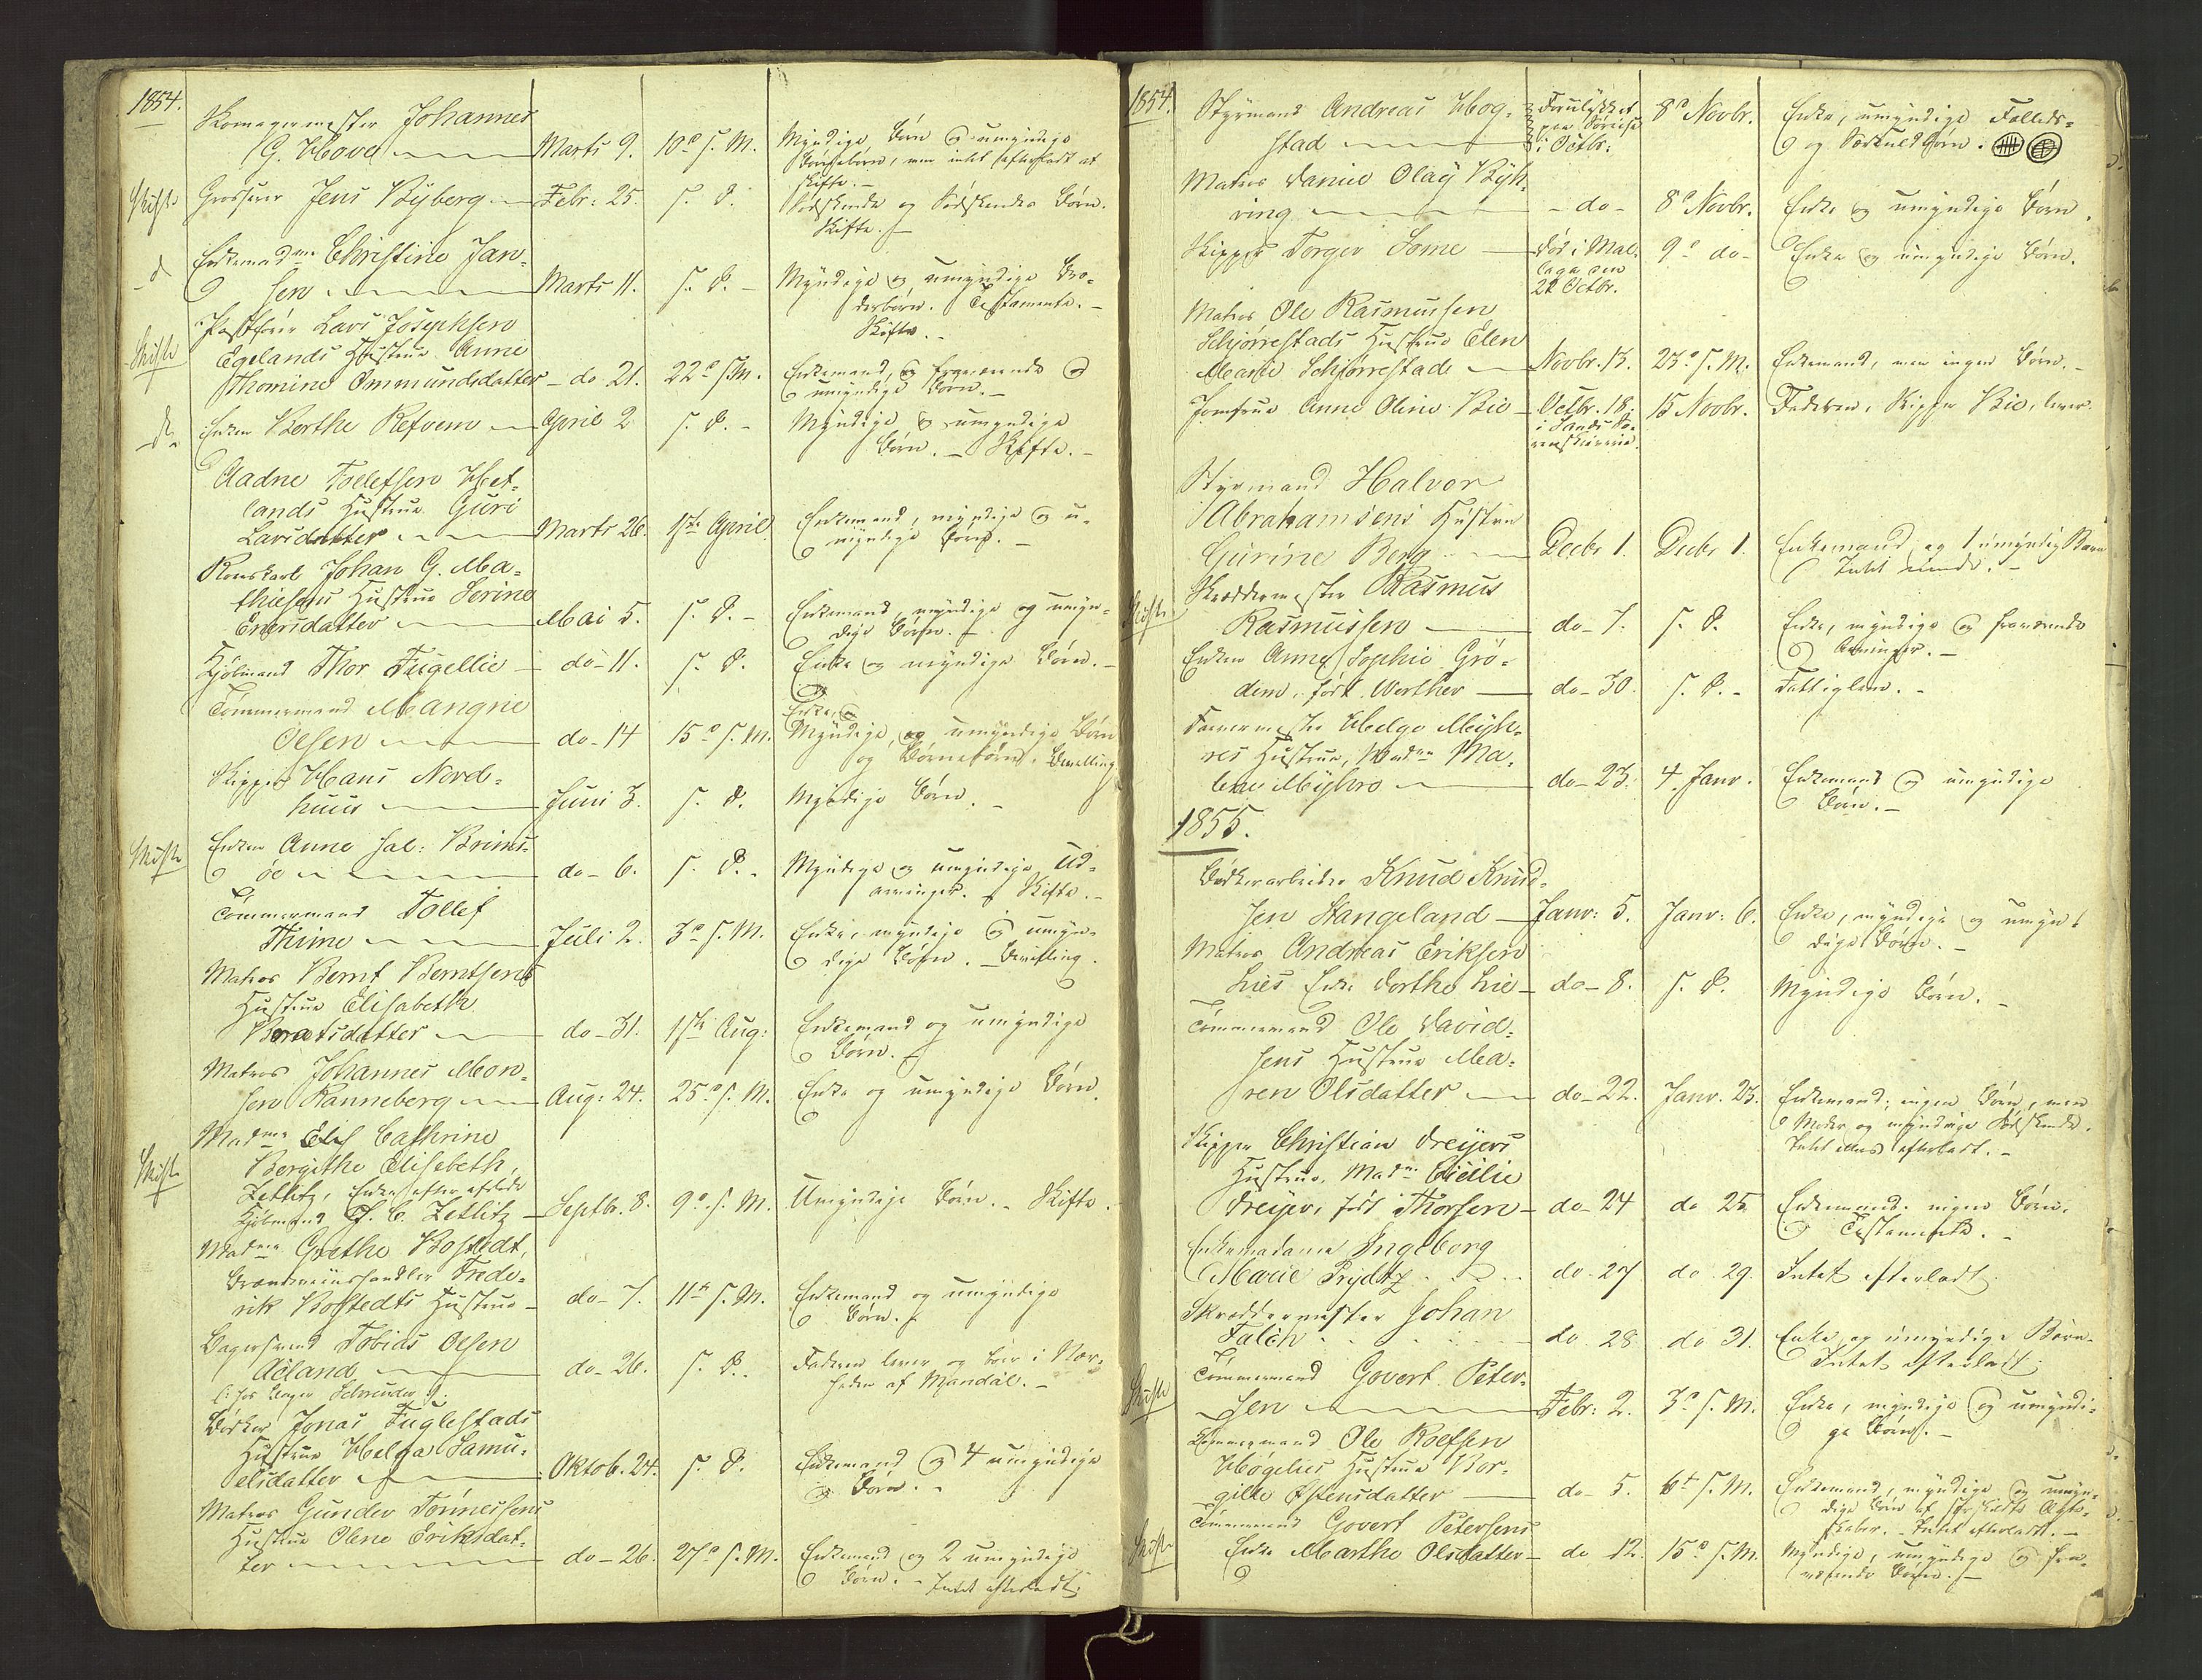 1854.
Skomagermester Johannes
G. Hove Marts 9. 10de s. M. Myndige Børn og umyndige
Børnebørn, men intet efterladt at
skifte.
Skifte Grosserer Jens Byberg Febr: 25. s. D. Sødskende og Sødskendes Børn.
Skifte.
Enkemadme Christine Jan-
sen Marts 11. s. D. Myndige og umyndige Bro-
derbørn. Testamente.
Skifte.
Skifte Lars Josephsen
Egelands Hustrue Anne
Thomine Ommundsdatter do 21. 22de s. M. Enkemand, og fraværende og
umyndige Børn.
Enken Berthe Refvem April 2 s. D. Myndige og umyndige
Børn. Skifte.
Aadne Tollefsen Høt-
lands Hustrue Guri
Larsdatter Marts 26. 1ste April Enkemand, myndige og u-
myndige Børn.
Johan G. Ma-
thiesens Hustrue Serine
Enersdatter Mai 5. s. D. Enkemand, myndige og umyn-
dige Børn.
Kjøbmand Thor Fugellie do 11. s. D. Enke og myndige Børn.
Tømmermand Mangne
Olsen do 14 15de s. M. Enke og
Myndige, og umyndige Børn
og Børnebørn. Bevilling
Skipper Hans Nord-
huus Juni 3. s. D. Myndige Børn.
Skifte Enken Anne Sal: Brims-
øe do 6. s. D. Myndige og umyndige Ud-
arvinger. Skifte.
Tømmermand Tollef
Thime Juli 2. 3de s. M. Enke, myndige og umyn-
dige Børn. Bevilling.
Matros Bernt Berntsens
Hustrue Elisabeth
Berntsdatter do 31. 1ste Aug: Enkemand og umyndige
Børn.
Matros Johannes Mon-
sen Ranneberg Aug: 24. 25de s. M. Enke og umyndige Børn.
Skifte Madme Cathrine
Bergithe Elisebeth
Zetlitz, Enke efter afdøde
Kjøbmand C. Zetlitz Septbr. 8. 9de s. M. Umyndige Børn. Skifte.
Madme Grethe Bostedt,
Brændeviinshandler Frede-
rik Bostedts Hustrue do 7. 11te s. M. Enkemand og umyndige
Børn.
Bagersvend Tobias Olsen
Aaland do 26. s. D. Faderen lever og boer i Nær-
heden af Mandal.
hos Bager Schreuder
Bødker Jonas Fuglestads
Hustrue Helga Samu-
elsdatter Oktob. 24. s. D. Enkemand og 4 umyndige
Børn.
Matros Gunder Tønnessens
Hustrue Olene Eriksdat-
ter do 26. 27de s. M. Enkemand og 2 umyndige
Børn. Intet efterladt.
1854. Styrmand Andreas Hog-
stad Forulykket
paa Søreise
i Octbr: 8de Novbr. Enke, umyndige Fælleds-
og Særkuldbørn.
Matros Daniel Olaij Byh-
ring do 8de Novbr. Enke og umyndige Børn.
Skipper Torger Some Død i Mal-
laga den
22 Octbr. 9de do Enke og umyndige Børn.
Matros Ole Rasmussen
Schjørrestads Hustrue Elen
Marie Schjørrestad Novbr. 13. 23de s. M. Enkemand, men ingen Børn.
Jomfrue Anne Oline Bie Octbr. 18
i Sands So-
renskriverie. 15 Novbr. Faderen, Skipper Bie, lever.
Styrmand Halvor
Abrahamsens Hustrue
Gurine Berg Decbr 1. Decbr 1. Enkemand og 1 umyndig Barn
Skifte Skreddermester Rasmus
Rasmussen do 7. s. D. Enke, myndige og fraværende
Arvinger.
Enken Anne Sophie Grø-
dem, født Werther do 30. s. D. Fattiglem.
Helge Myh-
res Hustrue, Madme Ma-
lene Myhre do 23. 4. Janv. Enkemand og umyndige
Børn.
1855.
Knud Knud-
sen Stangeland Janv: 5. Janv: 6. Enke, myndige og umyn-
dige Børn.
Matros Andreas Eriksen
Lies Enke Dorthe Lie do 8. s. D. Myndige Børn.
Tømmermand Ole David-
sens Hustrue Ma-
ren Olsdatter do 22. Janv. 23. Enkemand; ingen Børn, men
Moder og myndige Sødskende.
Intet efterladt.
Skipper Christian Dreyers
Hustrue, Madme Cicilie
Dreyer, født Thorsen do 24 do 25 Enkemand. ingen Børn.
Testamente.
Enkemadame Ingeborg
Marie Prydtz do 27 do 29. Intet efterladt.
Skræddermester Johan
Falch do 28 do 31. Enke og umyndige Børn.
Intet efterladt.
Skifte Tømmermand Govert Peter-
sen Febr: 2. 3de s. M. Enke, myndige og umyndi-
ge Børn.
Tømmermand Ole Roefsen
Høgelies Hustrue Bor-
gille Østensdatter do 5. 6te s. M. Enkemand, myndige og umyn-
dige Børn af Ægte-
skaber. Intet efterladt.
Skifte Tømmermand Govert Petersens
Enke Marthe Olsdatter do 12. 15de s. M. Myndige, umyndige og fra-
værende Børn.